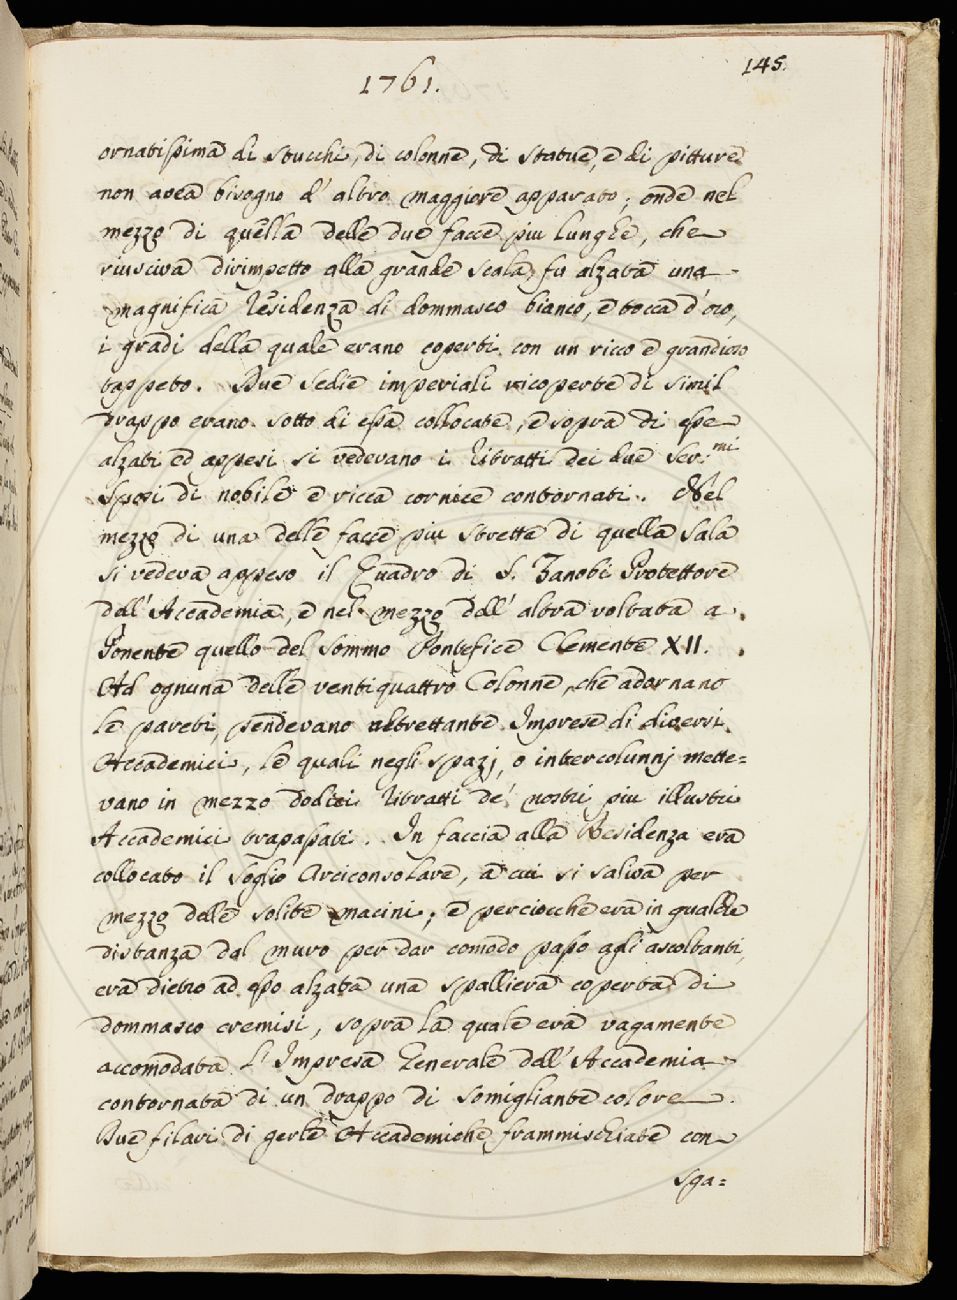 1761.
145.
ornatissima di stucchi, di colonne, di statue, e di pitture
non avea bisogno d' altro maggiore apparato, onde nel
mezzo di quella delle due facce più lunghe, che
riusciva dirimpetto alla grande scala, fu alzata una
magnifica Residenza di dommasco bianco, e tocca d'oro,
i gradi della quale erano coperti con un ricco e grandioso
tappeto. Due Sedie imperiali ricoperte di simil
drappo erano sotto di essa collocate, e sopra di esse
alzati ed appesi si vedevano i Ritratti dei due Ser.mi
Sposi di nobile e ricca cornice contornati. Nel
mezzo di una delle facce più strette di quella Sala
si vedeva appeso il Quadro di S. Zanobi Protettore
dell' Accademia, e nel mezzo dell' altra voltata a
Ponente quello del Sommo Pontefice Clemente XII.
Ad ognuna delle ventiquattro Colonne, che adornano
le pareti, pendevano altrettante Imprese di diversi
Accademici, le quali negli spazj, o intercolunnj mette=
vano in mezzo dodici Ritratti de' nostri più illustri
Accademici trapassati. In faccia alla Residenza era
collocato il Soglio Arciconsolare, a cui si saliva per
mezzo delle solite macini, e perciocchè era in qualche
distanza dal muro per dar comodo passo agli ascoltanti,
era dietro ad esso alzata una spalliera coperta di
dommasco cremisi, sopra la quale era vagamente
accomodata l' Impresa Generale dell' Accademia
contornata di un drappo di somigliante colore.
Due filari di gerle Accademiche frammischiate con
sga=